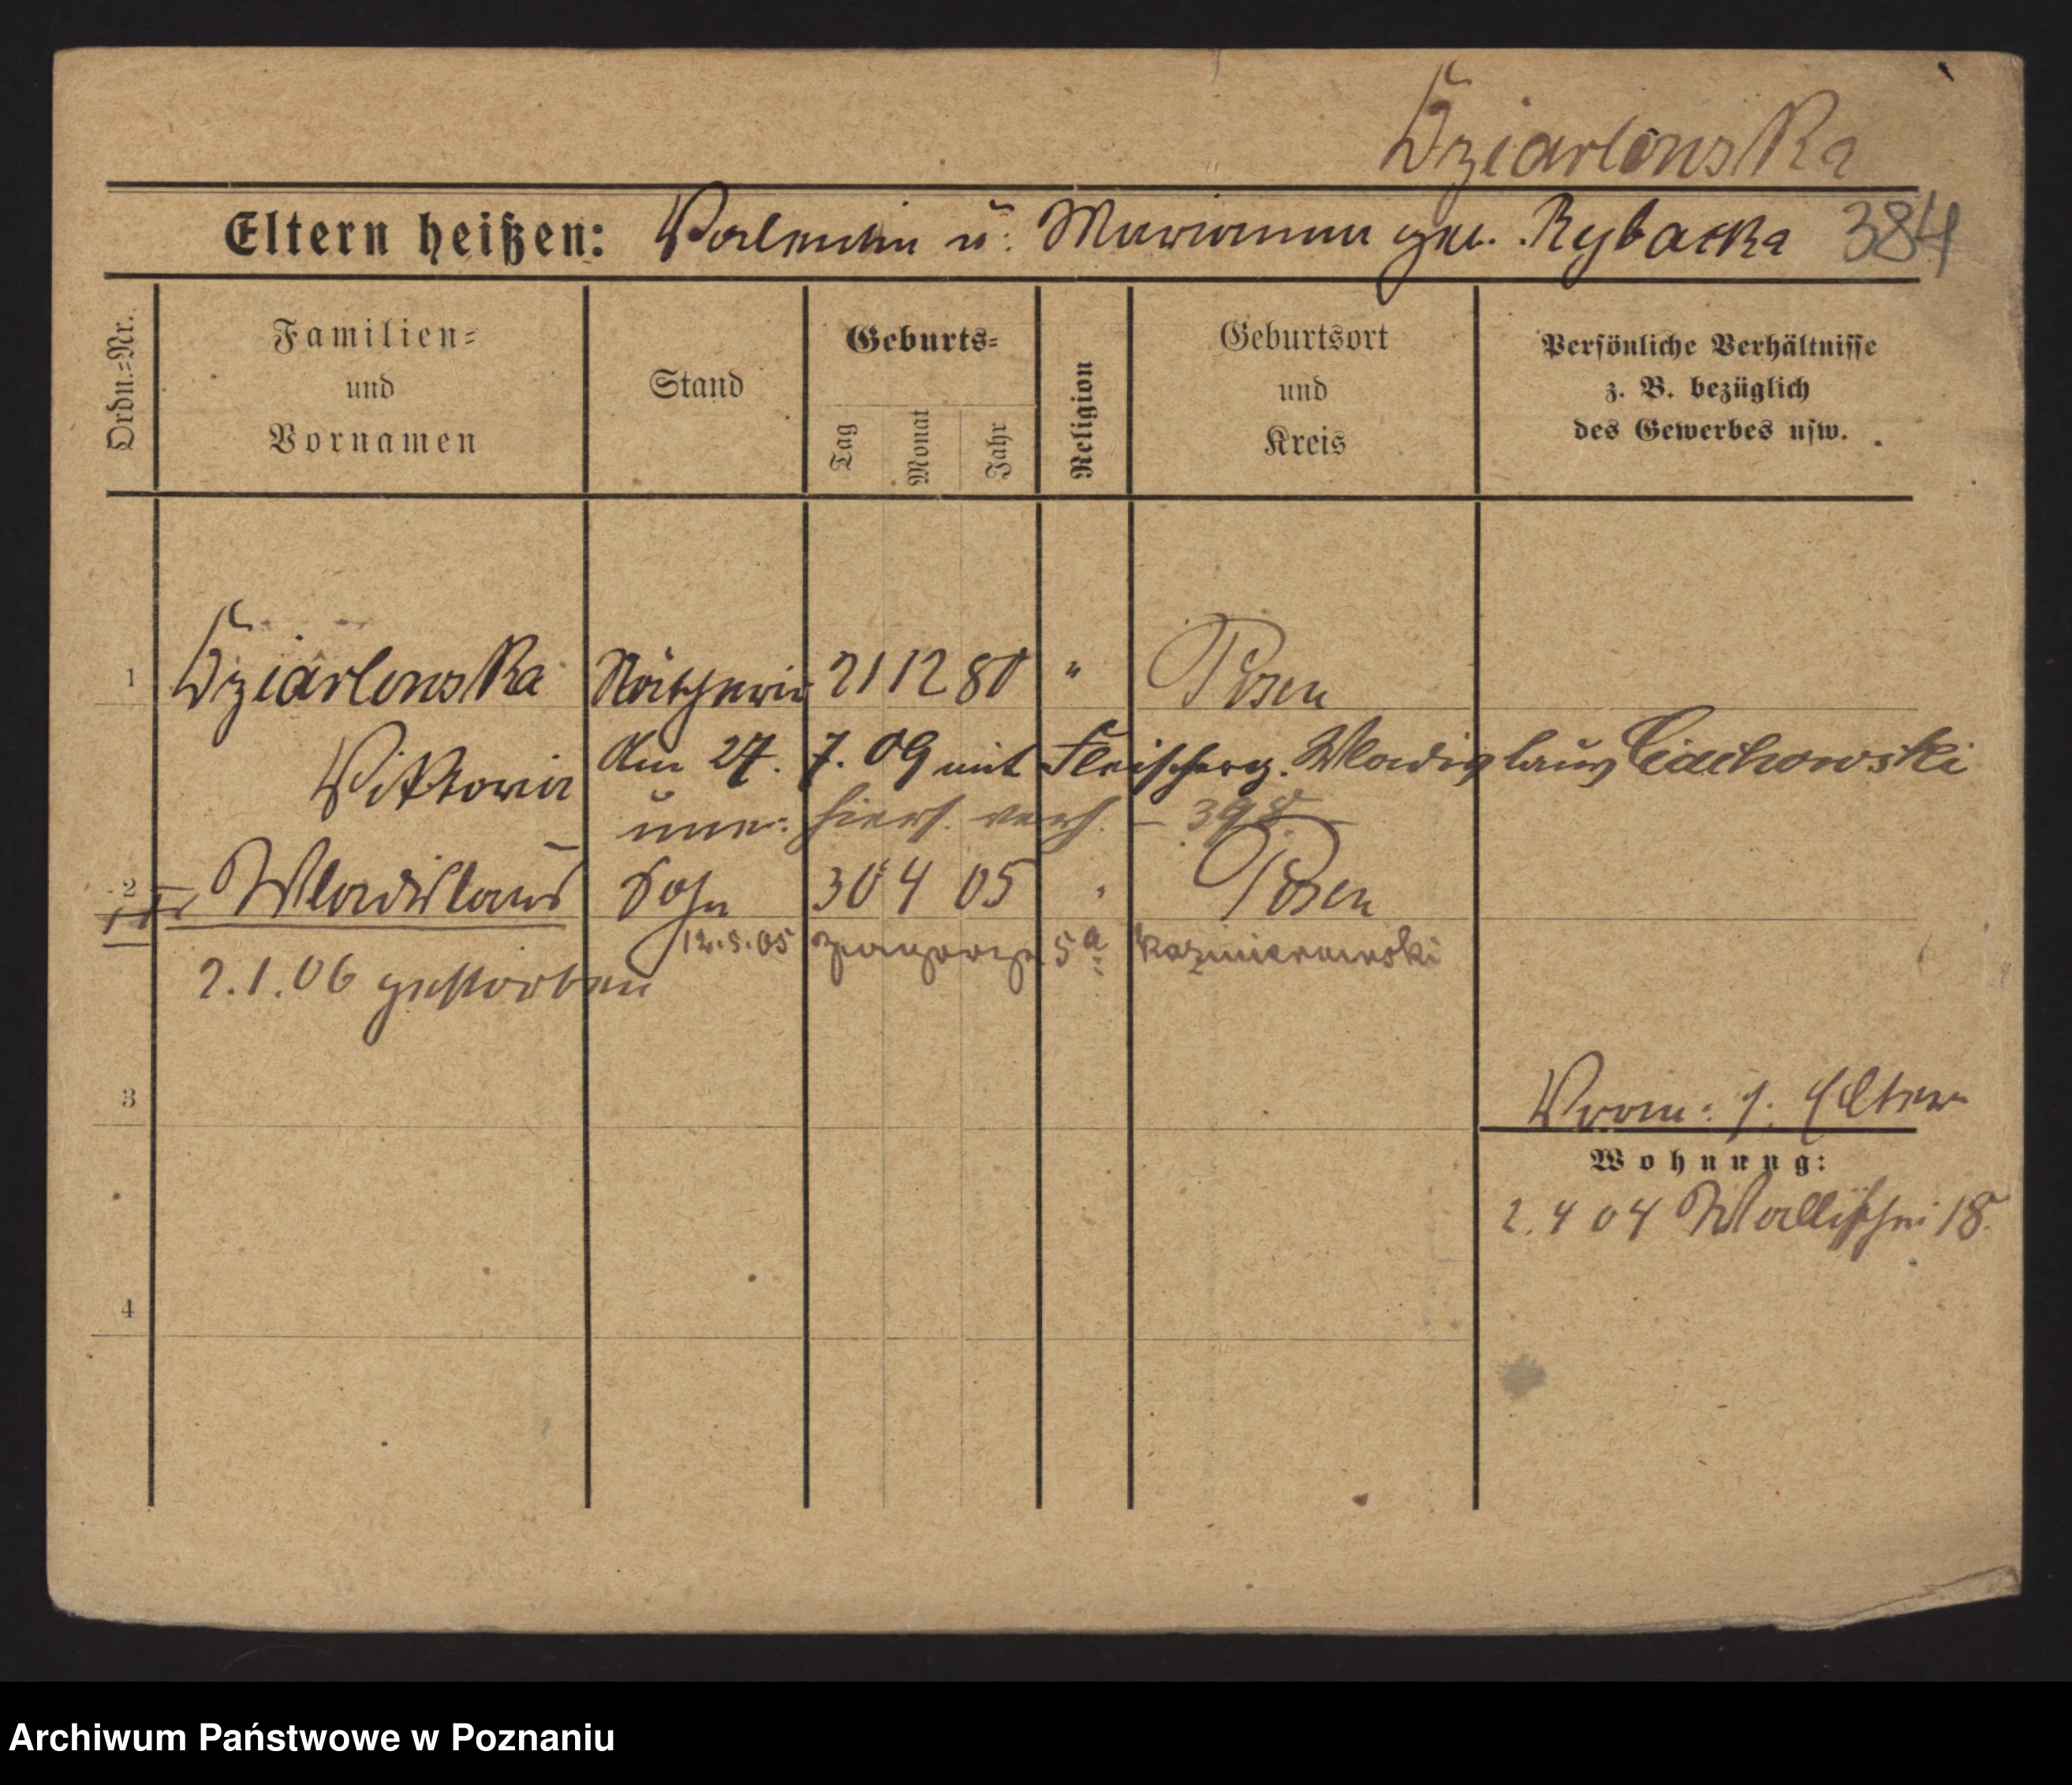 Dziarlowska
Eltern heißen: Valentin u. Marianna geb. Rybacka 384
Ordn.-Nr.
Familien-
und
Vornamen
Stand
Geburts-
Tag
Monat
Jahr
Religion
Geburtsort
und
Kreis
Persönliche Verhältnisse
z. B. bezüglich
des Gewerbes usw.
1 Dziarlowska Nätherin 21 12 80 " Posen
Viktoria Am 27. 7. 09 mit Fleischerg. Wladislaus Ciachowski
une. hiers. verh. – 398 –
2 Wladislaus Sohn 30 4 05 " Posen
12.5.05 5a Kazmierowski
2.1.06 gestorben
3
Vorm: s. Eltern
Wohnung:
2. 4 04 Wallischei 18.
4
Archiwum Państwowe w Poznaniu